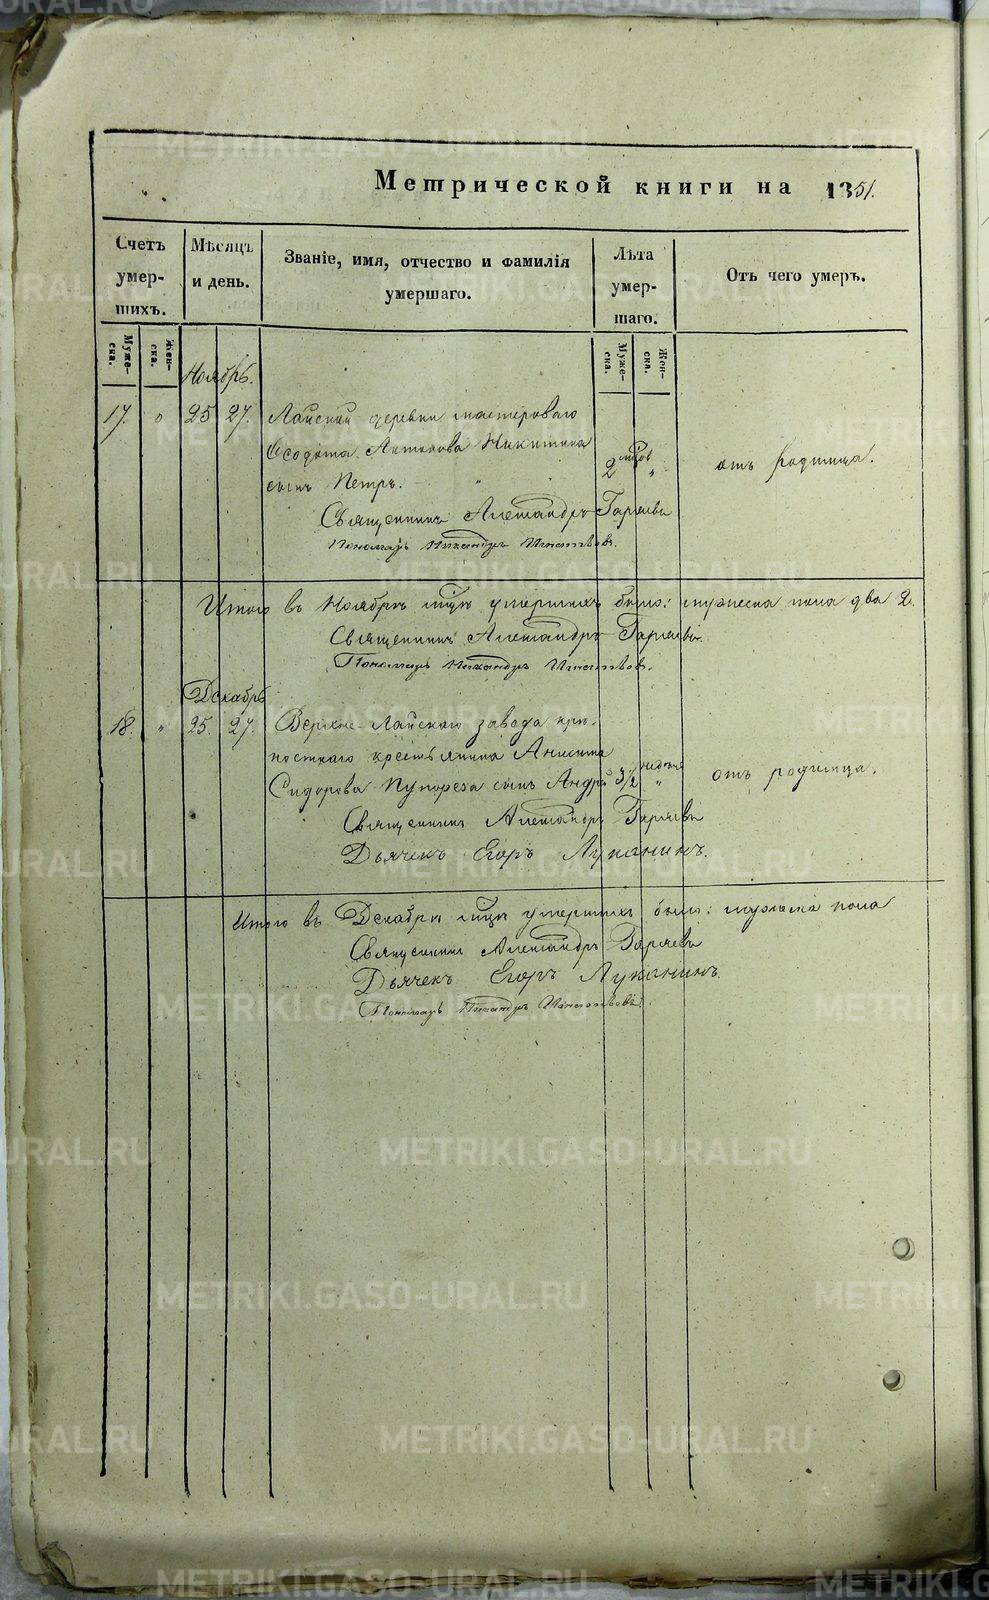 Метрической книги на 1851.
Счетъ умершихъ.
Мѣсяцъ и день.
Званіе, имя, отчество и фамилія умершаго.
Лѣта умершаго.
Отъ чего умеръ.
Мужеска.
Женска.
Мужеска.
Женска.
Ноябрь.
17. " 25 27. Лайской деревни мастероваго
Ѳеодота Антонова Никитина
сынъ Петръ. " 2 мцов " отъ родимца.
Священникъ Александръ Гаряевъ
Пономарь Никандръ Игнатьевъ.
Итого въ Ноябрѣ мцѣ умершихъ было: мужеска пола два 2.
Священникъ Александръ Гаряевъ.
Пономарь Никандръ Игнатьевъ.
Декабрь
18. " 25. 27. Верхне-Лайскаго завода крѣ-
постнаго крестьянина
Сидорова сынъ Андрей 3½ недѣли " отъ родимца.
Священникъ Александръ Гаряевъ
Дьячекъ Егоръ Луканинъ.
Итого въ Декабрѣ мцѣ умершихъ было: мужеска пола
Священникъ Александръ Гаряевъ
Дьячекъ Егоръ Луканинъ.
Пономарь Никандръ Игнатьевъ.
METRIKI.GASO-URAL.RU